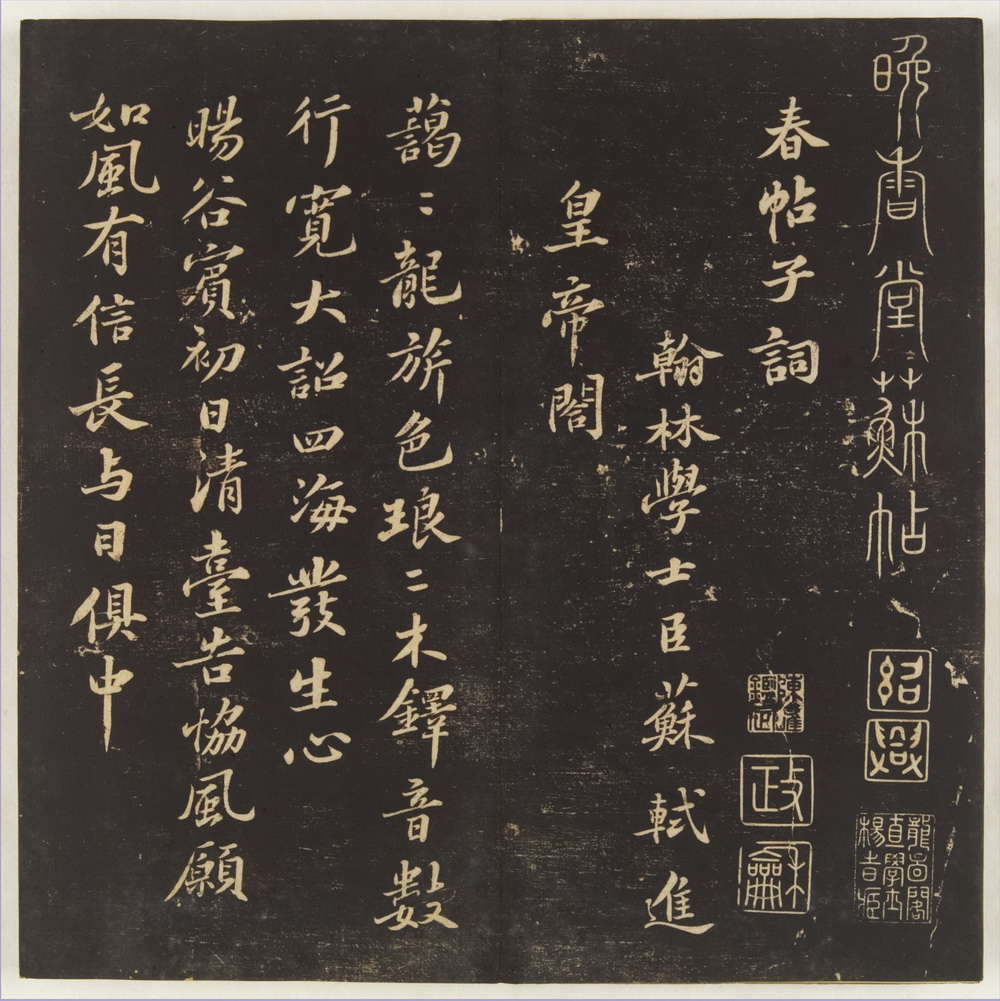 晚香堂蘇帖
紹興
龍圖閣
直學士
楊吉姬
春帖子詞
政和
翰林學士臣蘇軾進
皇帝閣
藹〻龍旂色琅〻木鐸音數
行寬大詔四海發生心
暘谷賓初日清臺告協風願
如風有信長与日俱中